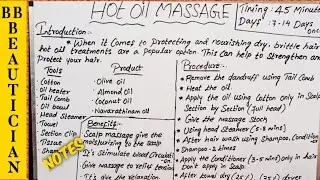 BB
BEAUTICIAN
NOTES
HOT OIL MASSAGE
Timing: 45 Minute
Days: 7-14 Days
once
Introduction:-
• When it comes to protecting and nourishing dry, brittle hair
hot oil treatments are a popular option. This can help to strengthen and
Protect your hair.
Tools
Cotton
Oil heater
Tail Comb
Oil bowl
Head Steamer
Towel
Section Clip
Tissue
Shampoo
Product
Olive oil
Almond oil
Coconut oil
Navarathnam oil
Benefits:-
Scalp massage give the
moisturizing to the scalp
It's Stimulate Blood Circulation
Give massage to relief tension
It's give the relaxation
Procedure:-
• Remove the dandruff using Tail Comb
• Heat the oil
• Apply the oil using Cotton only in Scalp
Section by Section (full head)
• Give the massage Stroch
• Using head Steamer (5-8 mins)
• After hair wash using Shampoo, Condition
• Shampoo - 2 times
• Apply the Conditioner (3-5 mins) only in hair
Don't apply in Scalp